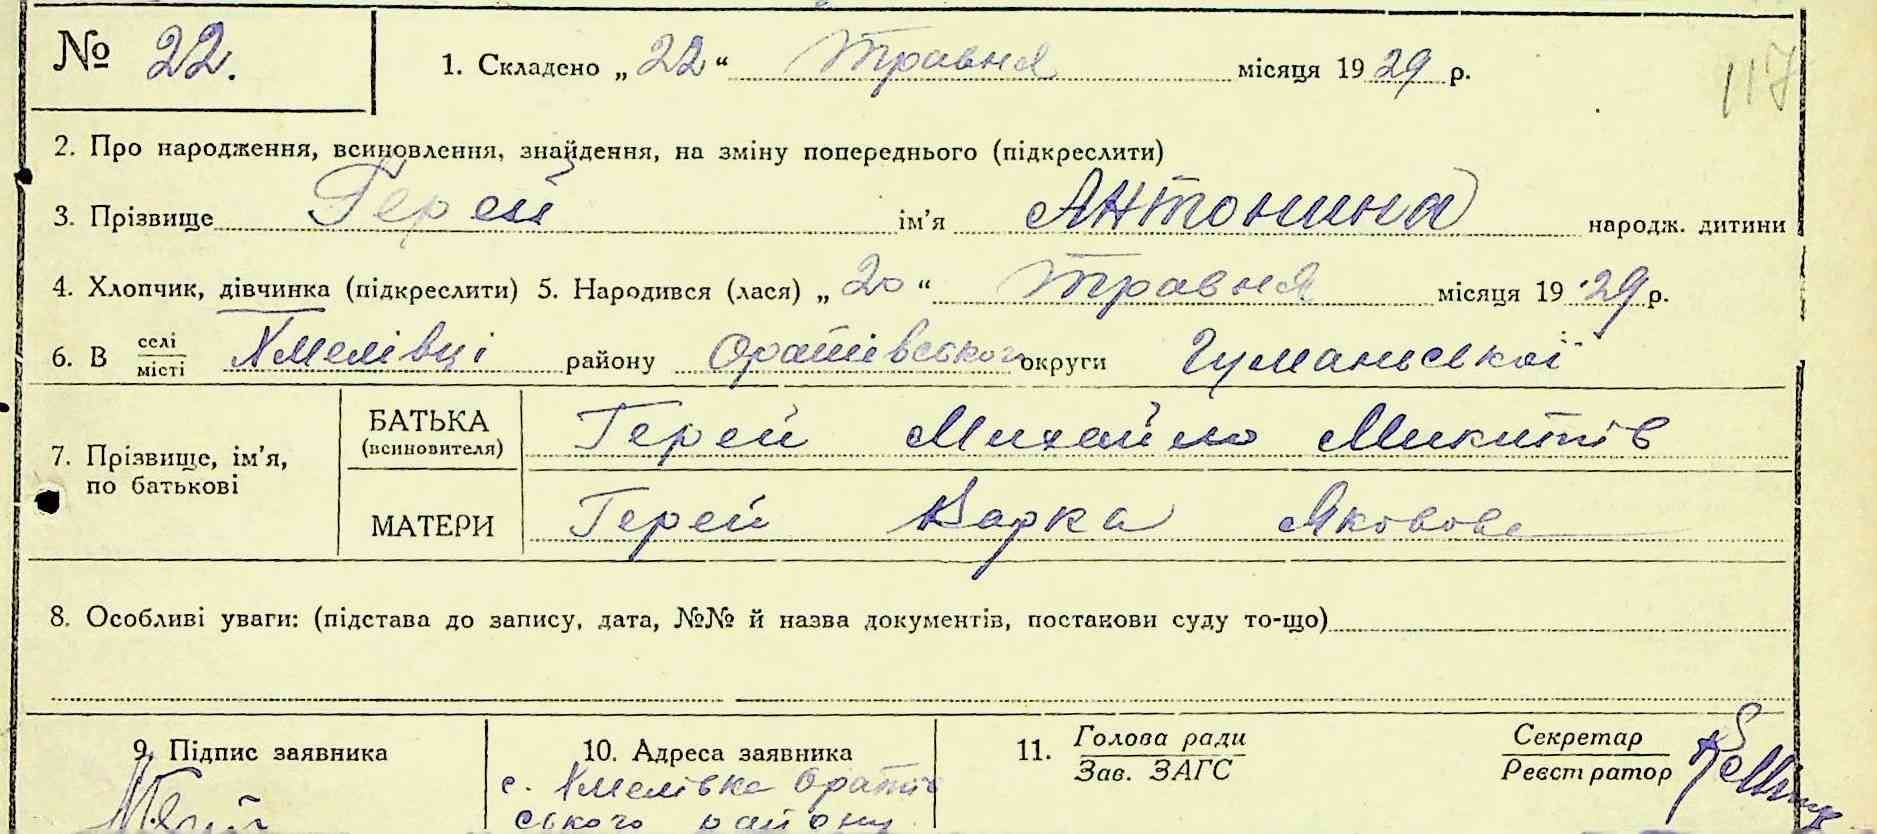 № 22. 1. Складено „ 22 “ Травня місяця 19 29 р. 117
2. Про народження, всиновлення, знайдення, на зміну попереднього (підкреслити)
3. Прізвище Герей ім’я Антонина народж. дитини
4. Хлопчик, дівчинка (підкреслити) 5. Народився (лася) „ 20 “ Травня місяця 19 29 р.
6. В селі
місті Хмелівці району Оратівського округи Гуманьської
7. Прізвище, ім’я,
по батькові
БАТЬКА
(всиновителя) Герей Михайло Микитів
МАТЕРИ Герей Варка Яковова
8. Особливі уваги: (підстава до запису, дата, №№ й назва документів, постанови суду то-що)
9. Підпис заявника
10. Адреса заявника
с. Хмелівка Оратів
ського району
11. Голова ради
Зав. ЗАГС
Секретар
Реєстратор